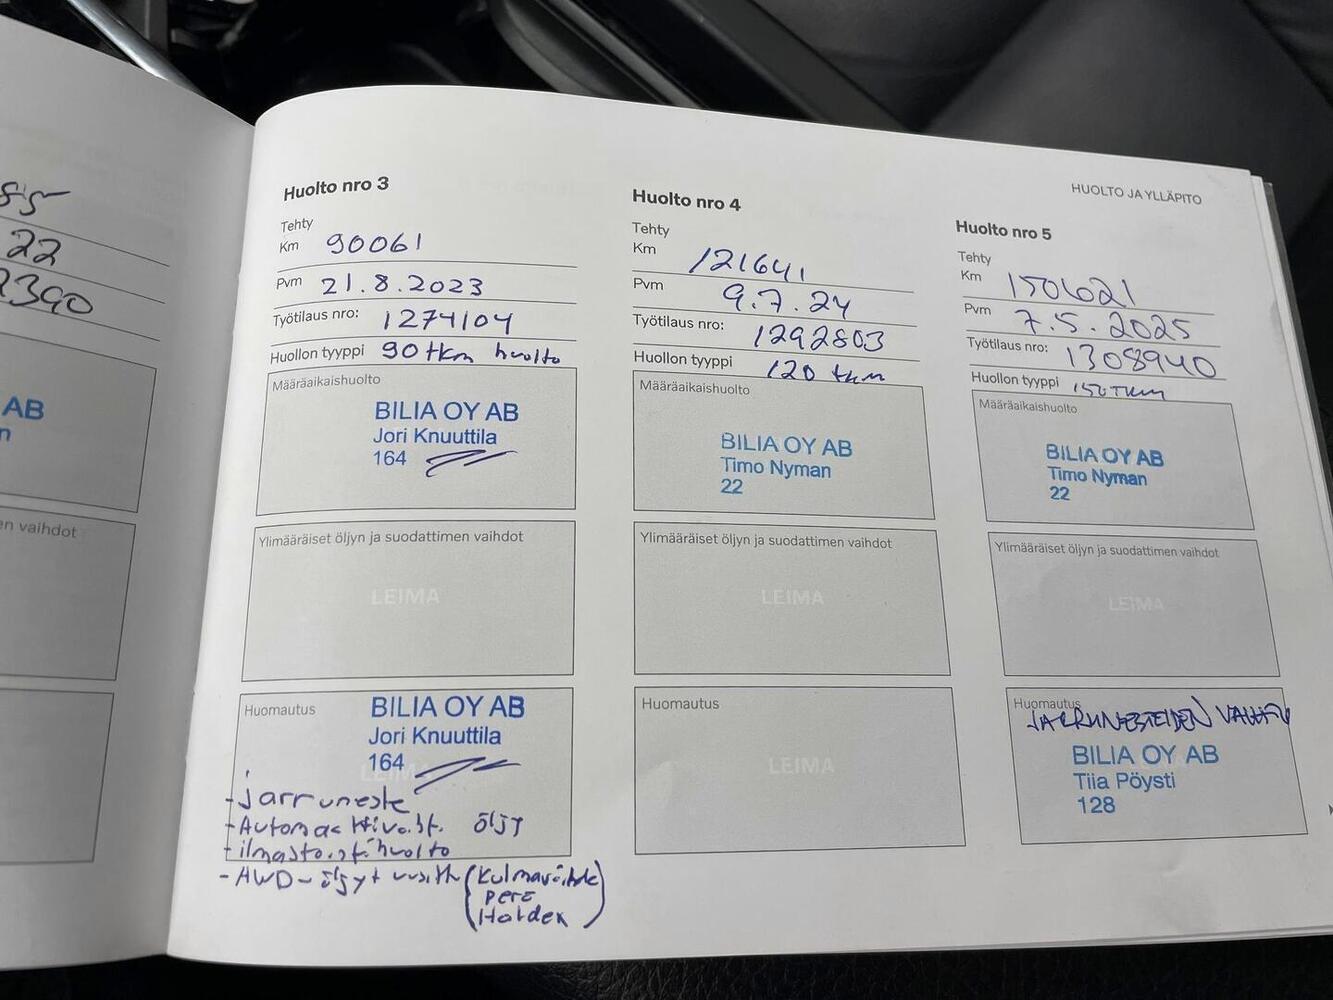 85
22
2390
AB
n
en vaihdot
HUOLTO JA YLLÄPITO
Huolto nro 3
Tehty
Km 90061
Pvm 21.8.2023
Työtilaus nro: 1274104
Huollon tyyppi 90 tkm huolto
Määräaikaishuolto
BILIA OY AB
Jori Knuuttila
164
Ylimääräiset öljyn ja suodattimen vaihdot
LEIMA
Huomautus
BILIA OY AB
Jori Knuuttila
164
LEIMA
- jarruneste
- Automaattivaiht. öljy
- ilmastointihuolto
- AWD-öljyt uusittu (Kulmavaihde
perä
Haldex)
Huolto nro 4
Tehty
Km 121641
Pvm 9.7.24
Työtilaus nro: 1292803
Huollon tyyppi 120 tkm
Määräaikaishuolto
BILIA OY AB
Timo Nyman
22
Ylimääräiset öljyn ja suodattimen vaihdot
LEIMA
Huomautus
LEIMA
Huolto nro 5
Tehty
Km 150621
Pvm 7.5.2025
Työtilaus nro: 1308940
Huollon tyyppi 150 TKM
Määräaikaishuolto
BILIA OY AB
Timo Nyman
22
Ylimääräiset öljyn ja suodattimen vaihdot
LEIMA
Huomautus
JARRUNESTEIDEN VAIHTO
BILIA OY AB
Tiia Pöysti
128